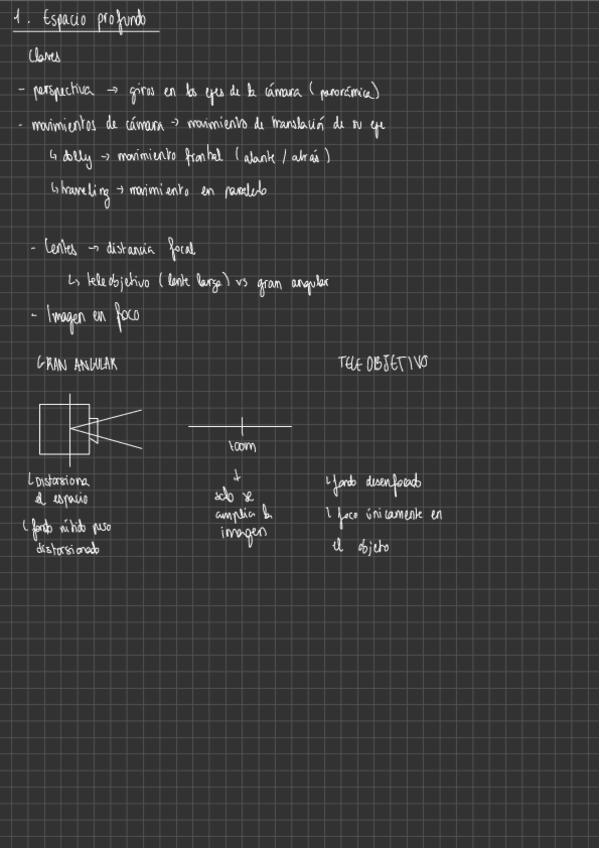 1. Espacio profundo
Claves
- perspectiva → giros en los ejes de la cámara (panorámica)
- movimientos de cámara → movimiento de translación de su eje
↳ dolly → movimiento frontal (alante / atrás)
↳ traveling → movimiento en paralelo
- Lentes → distancia focal
↳ teleobjetivo (lente larga) vs gran angular
- Imagen en foco
GRAN ANGULAR
TELEOBJETIVO
zoom
↳ Distorsiona
el espacio
↳ fondo nítido pero
distorsionado
↓
solo se
amplia la
imagen
↳ fondo desenfocado
↳ foco únicamente en
el objeto